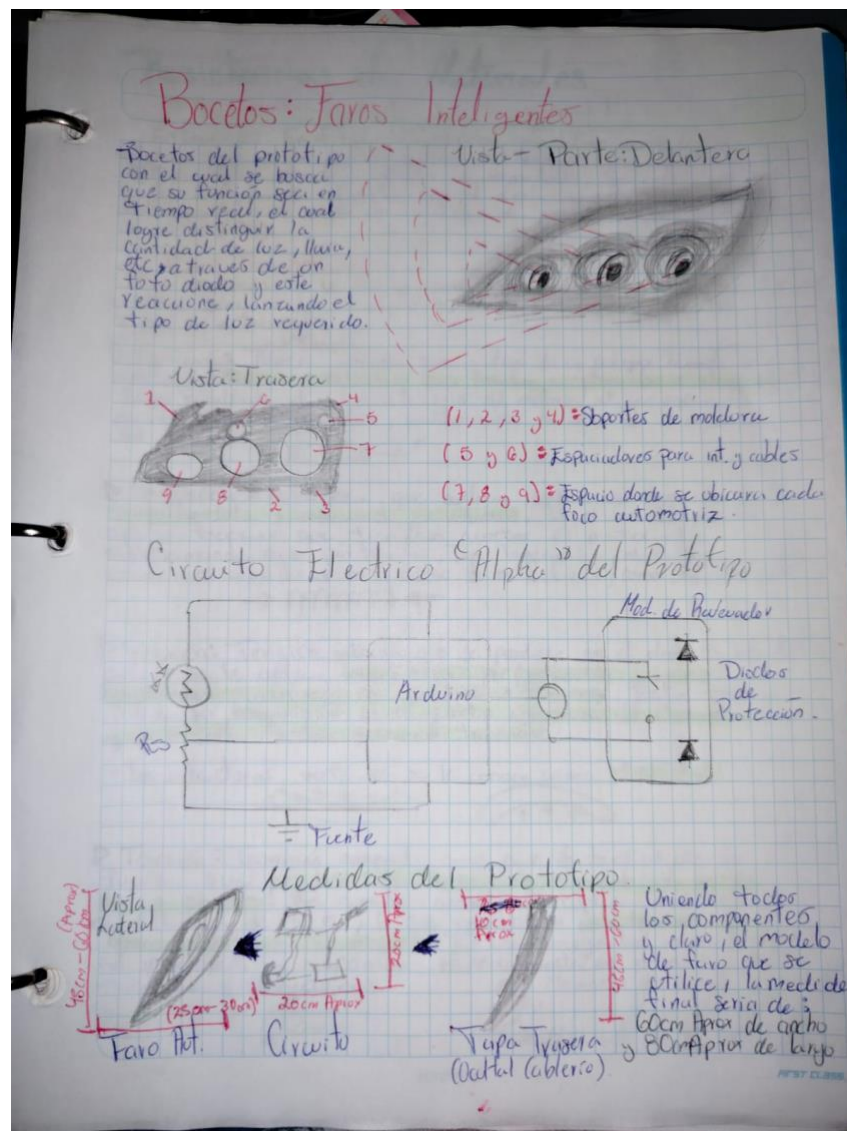 Bocetos: Faros Inteligentes
Bocetos del prototipo
con el cual se busca
que su función sea en
tiempo real, el cual
logre distinguir la
cantidad de luz, lluvia,
etc, a traves de un
foto diodo y este
reaccione, lanzando el
tipo de luz requerido.
Vista - Parte: Delantera
Vista: Trasera
1
6
4
5
7
9
8
2
3
(1, 2, 3 y 4) = Soportes de moldura
(5 y 6) = Espaciadores para int. y cables
(7, 8 y 9) = Espacio donde se ubicara cada
foco automotriz.
Circuito Electrico "Alpha" del Prototipo
Mod. de Relevador
Arduino
Diodos
de
Protección.
Fuente
Medidas del Prototipo
Vista
Lateral
(Aprox)
(25cm-30cm)
Faro Aut.
20cm Aprox
20cm Aprox
Circuito
10cm
Aprox
Tapa Trasera
(Ocultal Cablerío)
Uniendo todos
los componentes
y claro, el modelo
de faro que se
utilice, la medida
final seria de:
60cm Aprox de ancho
y 80cm Aprox de largo
FIRST CLASS